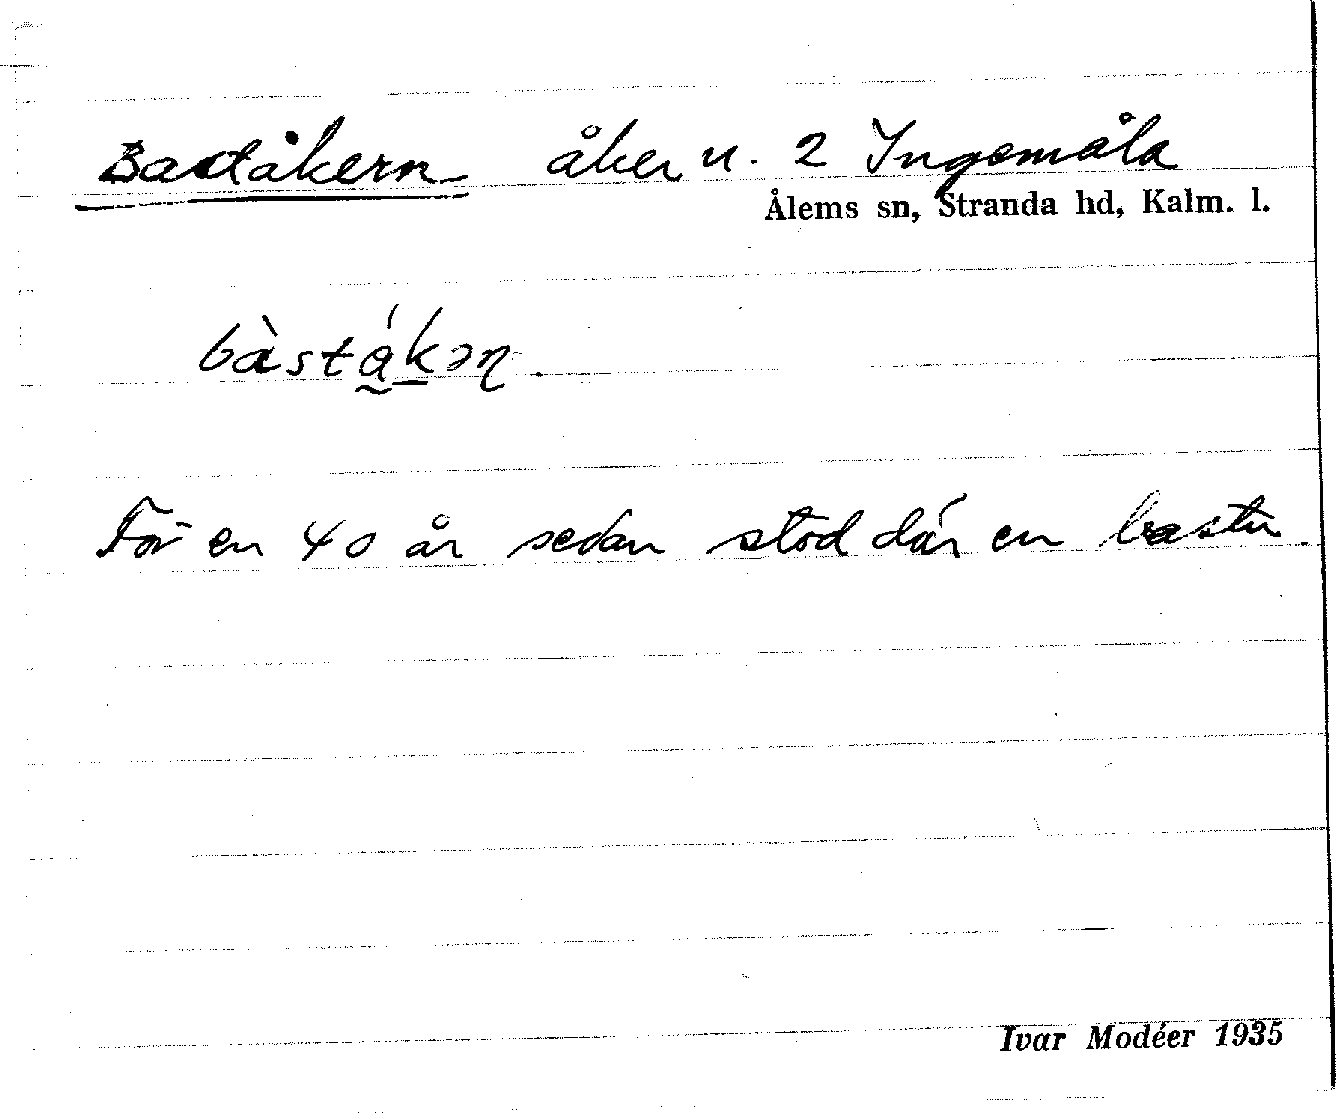 Baståkern åker u. 2 Ingemåla
Ålems sn, Stranda hd, Kalm. l.
bàstá̰ḵəɳ.
För en 40 år sedan stod där en bastu.
Ivar Modéer 1935